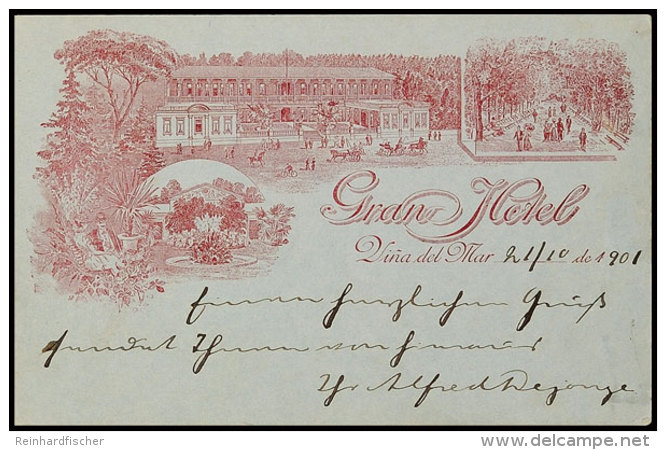 Gran Hotel
Viña del Mar 21/10 de 1901
Einen herzlichen Gruß
sendet Ihnen von hinaus
Ihr Alfred Dejonge
Reinhardfischer
delcampe.net